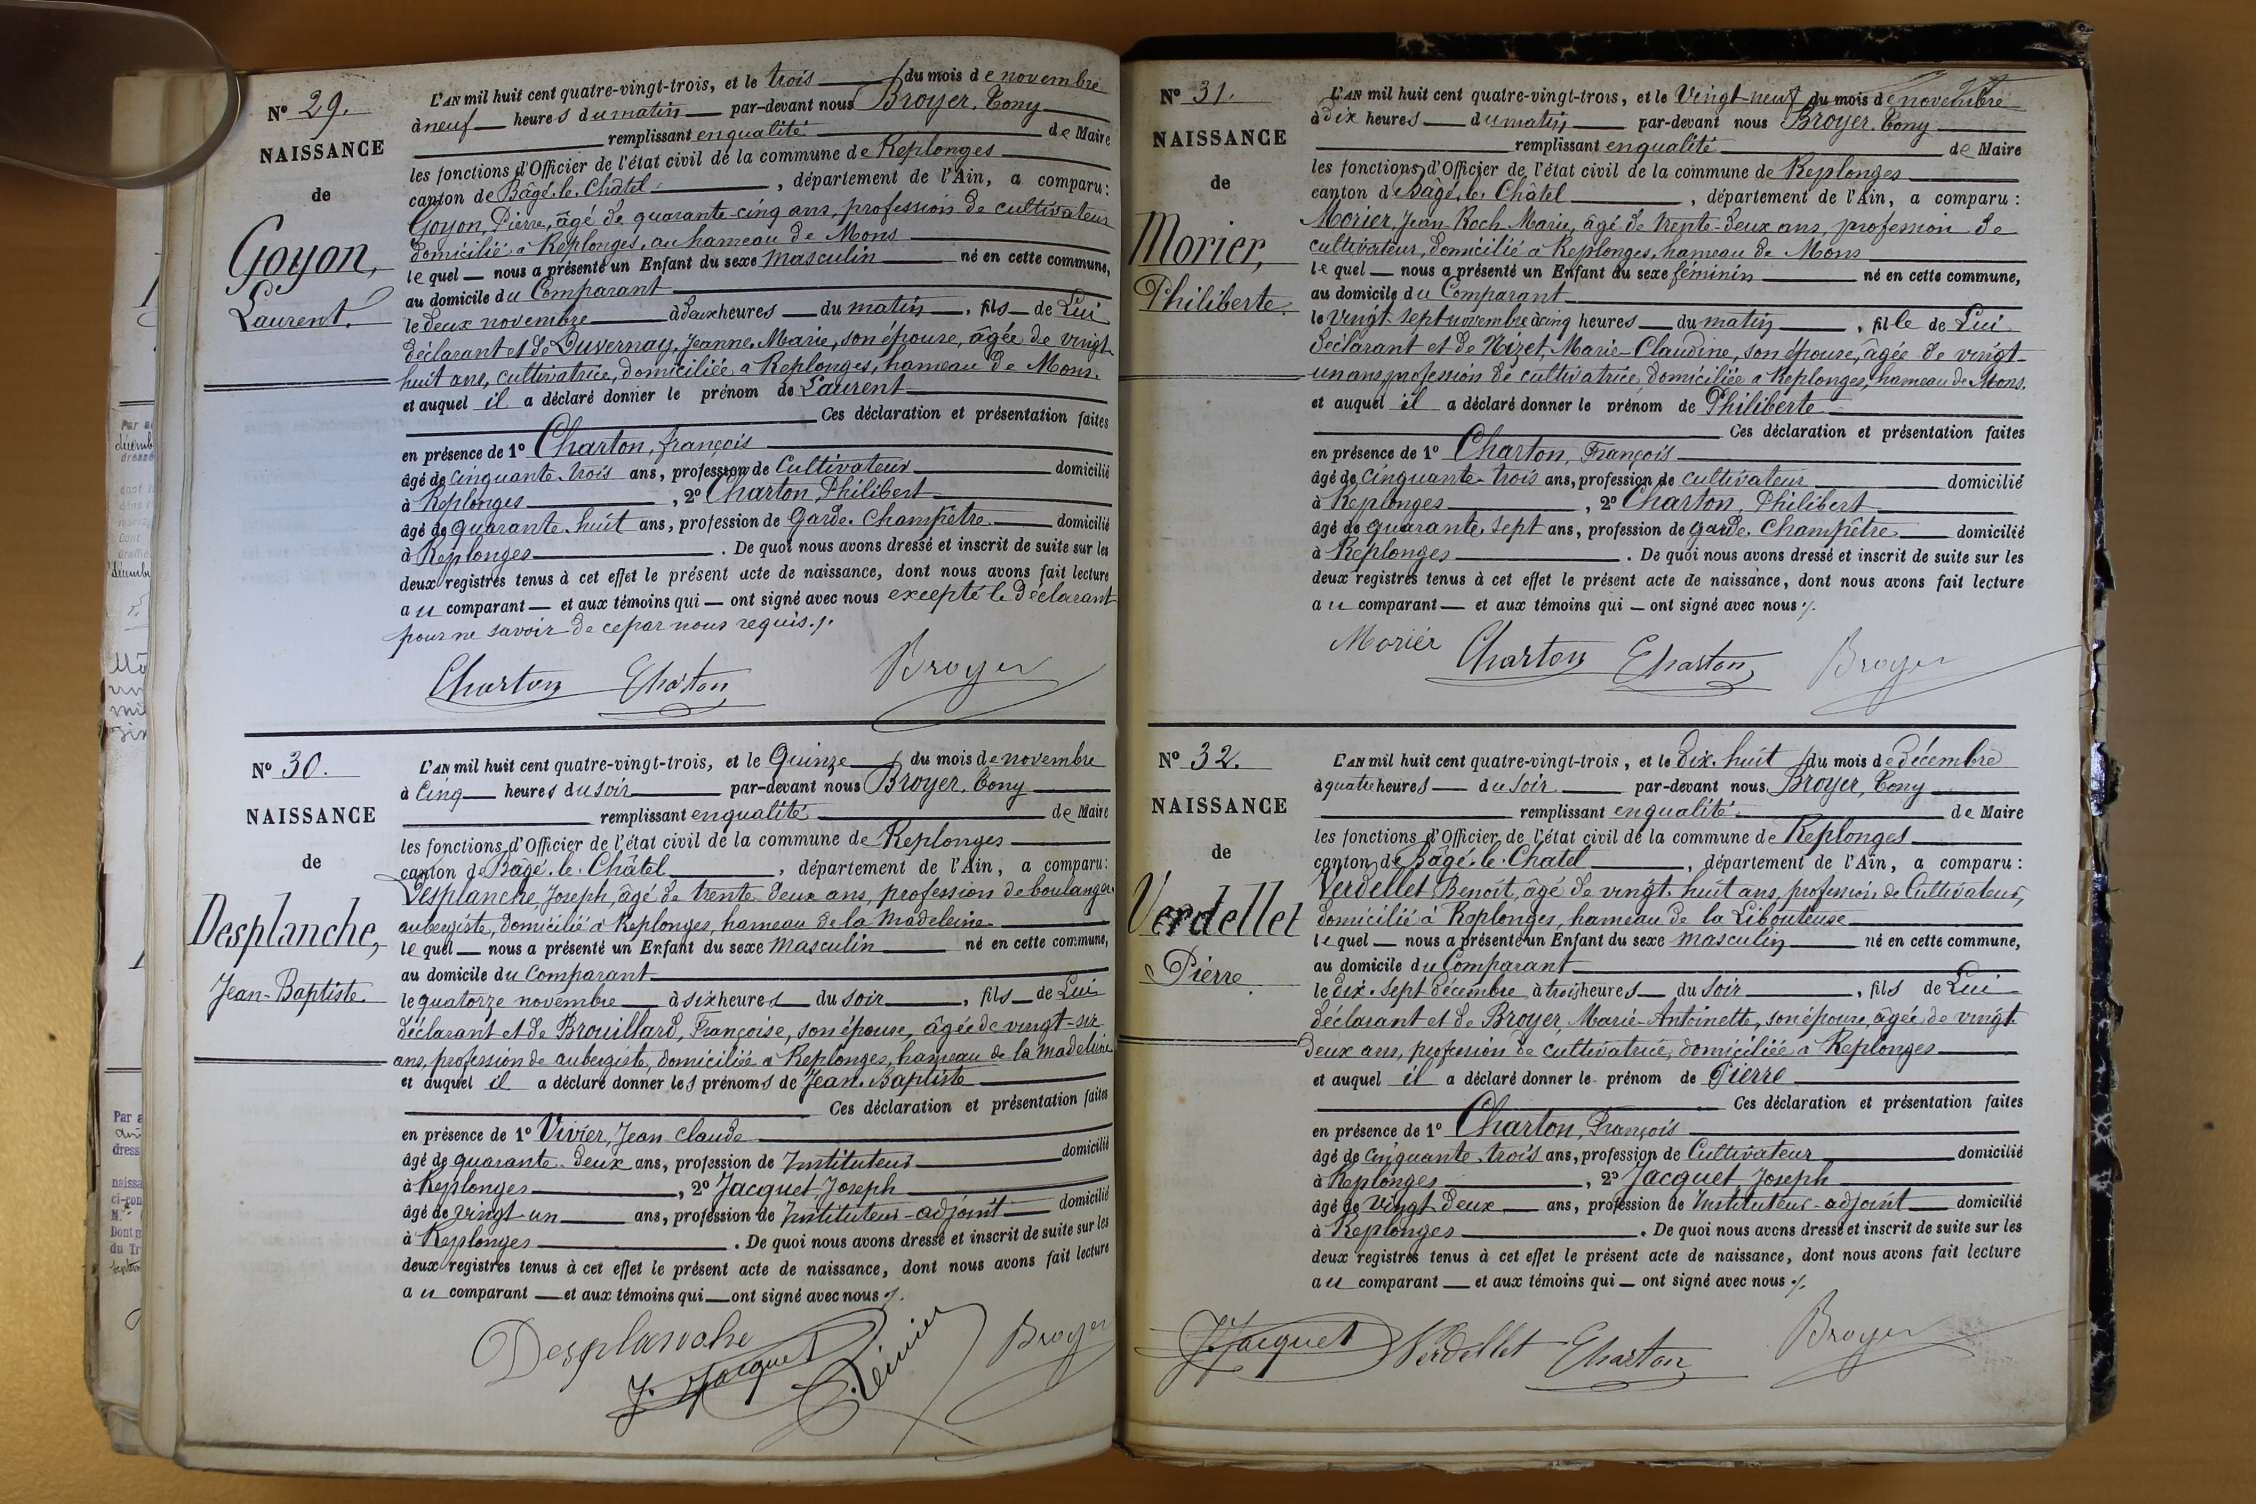 N° 29.
NAISSANCE
de
Goyon,
Laurent.
L'AN mil huit cent quatre-vingt-trois, et le trois du mois de novembre
à neuf heures du matin par-devant nous Broyer, Tony
remplissant en qualité de Maire
les fonctions d'Officier de l'état civil de la commune de Replonges
canton de Bâgé-le-Châtel, département de l'Ain, a comparu :
Goyon, Pierre, âgé de quarante-cinq ans, profession de cultivateur
domicilié à Replonges, au hameau de Mons
lequel nous a présenté un Enfant du sexe masculin né en cette commune,
au domicile du Comparant
le deux novembre à deux heures du matin, fils de Lui
déclarant et de Duvernay, Jeanne-Marie, son épouse, âgée de vingt-
huit ans, cultivatrice, domiciliée à Replonges, hameau de Mons.
et auquel il a déclaré donner le prénom de Laurent
Ces déclaration et présentation faites
en présence de 1° Charton, françois
âgé de cinquante-trois ans, profession de Cultivateur domicilié
à Replonges, 2° Charton, Philibert
âgé de quarante-huit ans, profession de Garde-Champêtre domicilié
à Replonges. De quoi nous avons dressé et inscrit de suite sur les
deux registres tenus à cet effet le présent acte de naissance, dont nous avons fait lecture
au comparant et aux témoins qui ont signé avec nous excepté le déclarant
pour ne savoir de ce par nous requis ./.
Charton Charton Broyer
N° 30.
NAISSANCE
de
Desplanche,
Jean-Baptiste.
L'AN mil huit cent quatre-vingt-trois, et le Quinze du mois de novembre
à Cinq heures du soir par-devant nous Broyer, Tony
remplissant en qualité de Maire
les fonctions d'Officier de l'état civil de la commune de Replonges
canton de Bâgé-le-Châtel, département de l'Ain, a comparu :
Desplanche, Joseph, âgé de trente-deux ans, profession de boulanger
aubergiste, domicilié à Replonges, hameau de la Madeleine
lequel nous a présenté un Enfant du sexe masculin né en cette commune,
au domicile du Comparant
le quatorze novembre à six heures du soir, fils de Lui
déclarant et de Brouillard, Françoise, son épouse, âgée de vingt-six
ans, profession de aubergiste, domiciliée à Replonges, hameau de la Madeleine
et auquel il a déclaré donner les prénoms de Jean-Baptiste
Ces déclaration et présentation faites
en présence de 1° Vivier, Jean Claude
âgé de quarante-deux ans, profession de Instituteur domicilié
à Replonges, 2° Jacquet, Joseph
âgé de vingt-un ans, profession de Instituteur-adjoint domicilié
à Replonges. De quoi nous avons dressé et inscrit de suite sur les
deux registres tenus à cet effet le présent acte de naissance, dont nous avons fait lecture
au comparant et aux témoins qui ont signé avec nous ./.
Desplanche J. Jacquet Broyer
N° 31.
NAISSANCE
de
Morier,
Philiberte.
L'AN mil huit cent quatre-vingt-trois, et le Vingt-neuf du mois de novembre
à dix heures du matin par-devant nous Broyer, Tony
remplissant en qualité de Maire
les fonctions d'Officier de l'état civil de la commune de Replonges
canton de Bâgé-le-Châtel, département de l'Ain, a comparu :
Morier, Jean Roch Marie, âgé de trente-deux ans, profession de
cultivateur, domicilié à Replonges, hameau de Mons
lequel nous a présenté un Enfant du sexe féminin né en cette commune,
au domicile du Comparant
le vingt-sept novembre à cinq heures du matin, fille de Lui
déclarant et de Nizet, Marie-Claudine, son épouse, âgée de vingt-
un ans, profession de cultivatrice, domiciliée à Replonges, hameau de Mons.
et auquel il a déclaré donner le prénom de Philiberte
Ces déclaration et présentation faites
en présence de 1° Charton, François
âgé de cinquante-trois ans, profession de cultivateur domicilié
à Replonges, 2° Charton, Philibert
âgé de quarante-sept ans, profession de garde-Champêtre domicilié
à Replonges. De quoi nous avons dressé et inscrit de suite sur les
deux registres tenus à cet effet le présent acte de naissance, dont nous avons fait lecture
au comparant et aux témoins qui ont signé avec nous ./.
Moriér Charton Charton Broyer
N° 32.
NAISSANCE
de
Verdellet
Pierre.
L'AN mil huit cent quatre-vingt-trois, et le dix-huit du mois de décembre
à quatre heures du soir par-devant nous Broyer, Tony
remplissant en qualité de Maire
les fonctions d'Officier de l'état civil de la commune de Replonges
canton de Bâgé-le-Chatel, département de l'Ain, a comparu :
Verdellet Benoît, âgé de vingt-huit ans, profession de Cultivateur,
domicilié à Replonges, hameau de la Libouteuse
lequel nous a présenté un Enfant du sexe masculin né en cette commune,
au domicile du Comparant
le dix-sept décembre à trois heures du soir, fils de Lui
déclarant et de Broyer, Marie-Antoinette, son épouse, âgée de vingt
deux ans, profession de cultivatrice, domiciliée à Replonges
et auquel il a déclaré donner le prénom de Pierre
Ces déclaration et présentation faites
en présence de 1° Charton, François
âgé de cinquante-trois ans, profession de Cultivateur domicilié
à Replonges, 2° Jacquet Joseph
âgé de vingt-deux ans, profession de Instituteur-adjoint domicilié
à Replonges. De quoi nous avons dressé et inscrit de suite sur les
deux registres tenus à cet effet le présent acte de naissance, dont nous avons fait lecture
au comparant et aux témoins qui ont signé avec nous ./.
J. Jacquet Verdellet Charton Broyer